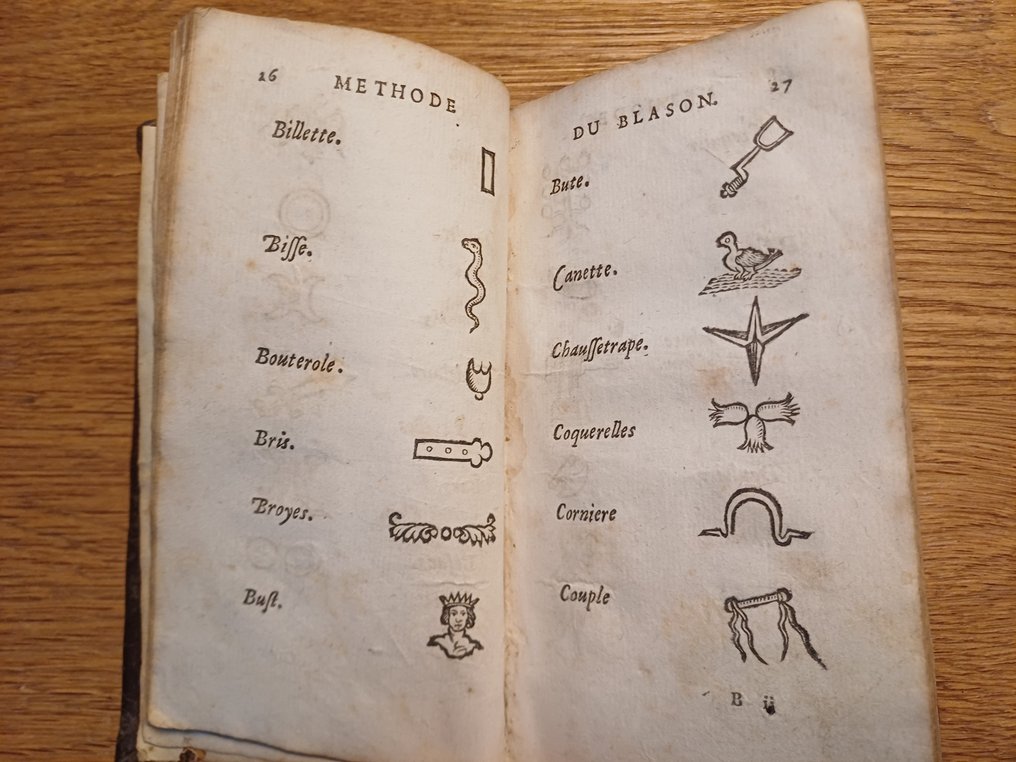 26 METHODE
Billette.
Biſſe.
Bouterole.
Bris.
Broyes.
Buſt.
DU BLASON. 27
Bute.
Canette.
Chauſſetrape.
Coquerelles
Corniere
Couple
B ij